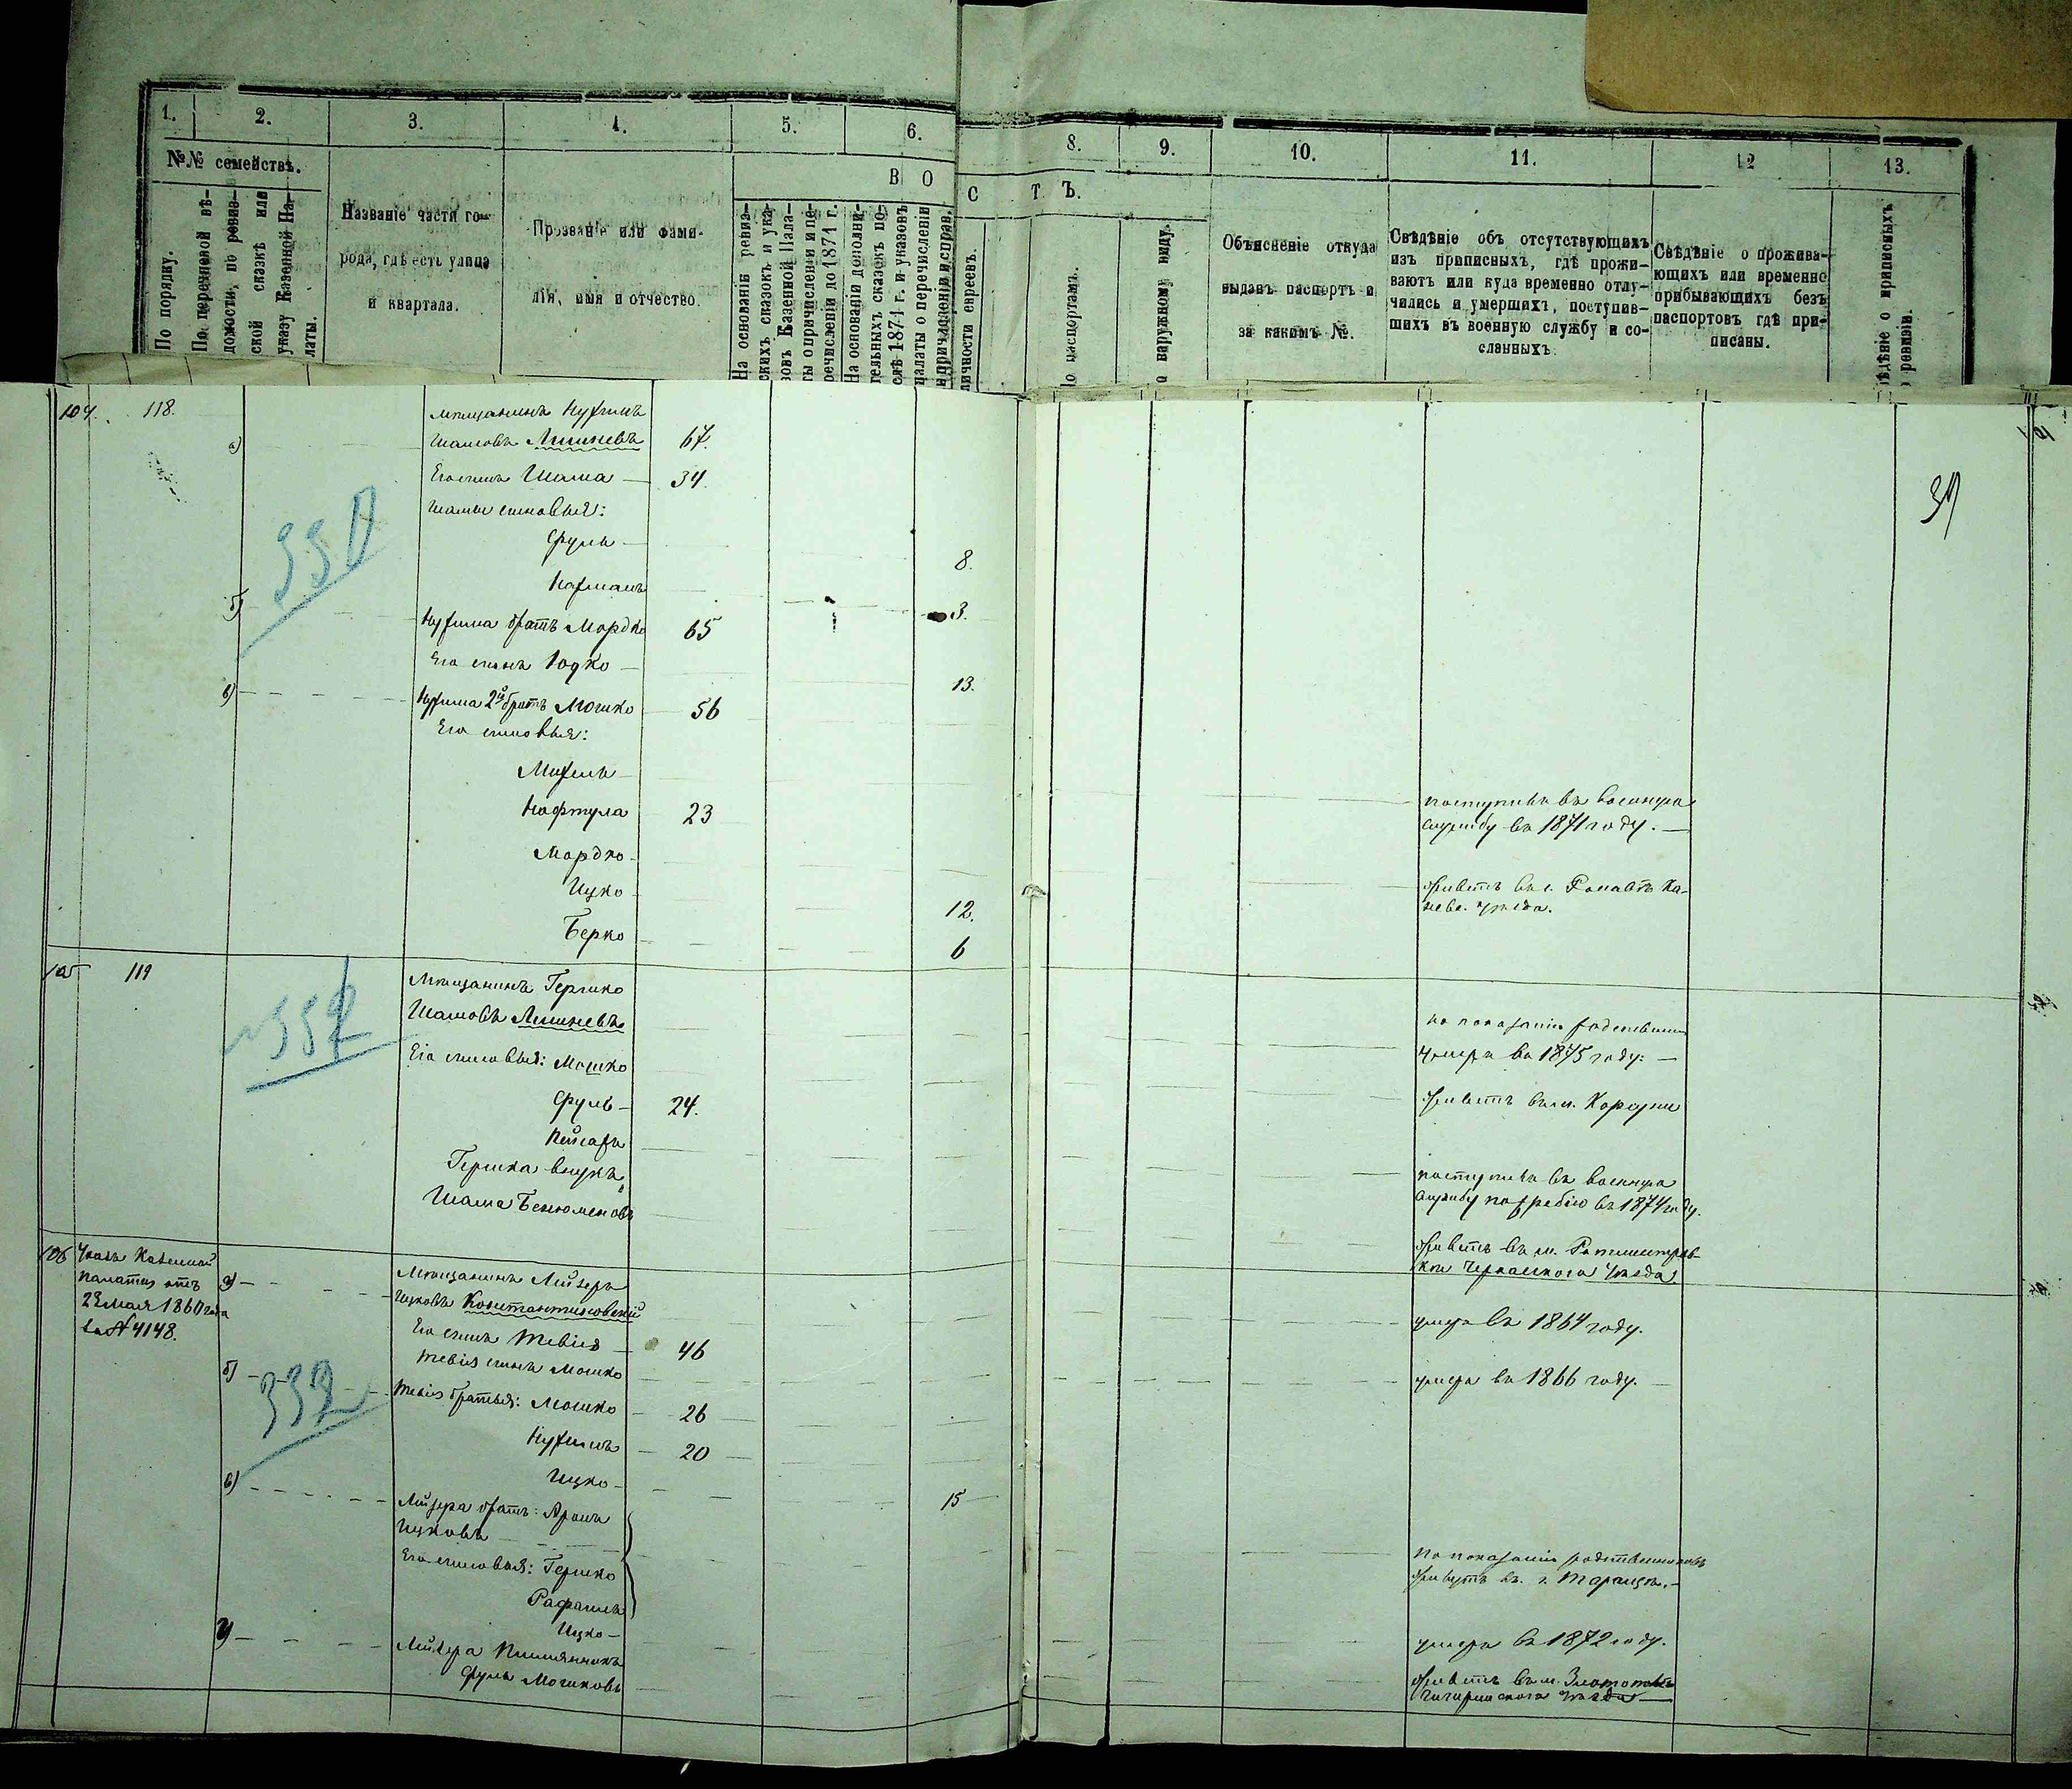 1. 2. 3. 4. 5. 6. 8. 9. 10. 11. 12 13.
№№ семействъ.
В О С Т Ъ.
По порядку.
По перечневой вѣ-
домости, по ревиз-
ской сказкѣ или
указу Казенной Па-
латы.
Названіе части го-
рода, гдѣ есть улица
и квартала.
Прозваніе или фами-
лія, имя и отчество.
На основаніи ревиз-
скихъ сказокъ и ука-
зовъ Казенной Пала-
ты о причисленіи и пе-
речисленіи до 1871 г.
На основаніи дополни-
тельныхъ сказокъ по-
слѣ 1871 г. и указовъ
палаты о перечисленіи
и причисленіи и справ.
личности евреевъ.
По паспортамъ.
о наружному виду.
Объясненіе откуда
выданъ паспортъ и
за какимъ №.
Свѣдѣніе объ отсутствующихъ
изъ приписныхъ, гдѣ прожи-
ваютъ или куда временно отлу-
чились и умершихъ, поступив-
шихъ въ военную службу и со-
сланныхъ.
Свѣдѣніе о прожива-
ющихъ или временно
прибывающихъ безъ
паспортовъ гдѣ при-
писаны.
ѣдѣніе о приписныхъ
о ревизіи.
104. 118.
Мѣщанинъ Нухимъ
а) Шамовъ 67.
Его сынъ Шама 34.
Шамы сыновья:
Сруль 8.
Нахманъ 3.
б) Нухима братъ Мордко 65
Его сынъ Юдко 13.
в) Нухима 2й братъ Мошко 56
Его сыновья:
Михель
Нафтула 23 поступилъ въ военную
службу въ 1871 году.
Мордко
Ицко 12. живетъ въ
уѣзда.
Берко 6
330
105 119
Мѣщанинъ Гершко
Шамовъ по показанію
умеръ въ 1875 году.
Его сыновья: Мошко
Сруль 24. живетъ въ м. Корсуни
Пейсахъ
Гершка внукъ поступилъ въ военную
службу по жребію въ 1874 году.
Шама Бенюменовъ
живетъ въ м.
Черкасского уѣзда.
106 Указъ Казенной
Палаты отъ
мая 1860 года
за № 4148.
332
а) Мѣщанинъ Лейзеръ
Ицковъ Константиновскій умеръ въ 1864 году.
Его сынъ Тевія 46
Тевія сынъ Мошко умеръ въ 1866 году.
б) Тевія братья: Мошко 26
Нухимъ 20
Ицко 15
в) Лейзера братъ: Аронъ
Ицковъ
Его сыновья: Гершко по показанію родственниковъ
живутъ въ г. Таращѣ.
Рафаилъ
Ицко умеръ въ 1872 году.
г) Лейзера племянникъ
Сруль Мошковъ живетъ въ м. Златополѣ
Чигиринского уѣзда